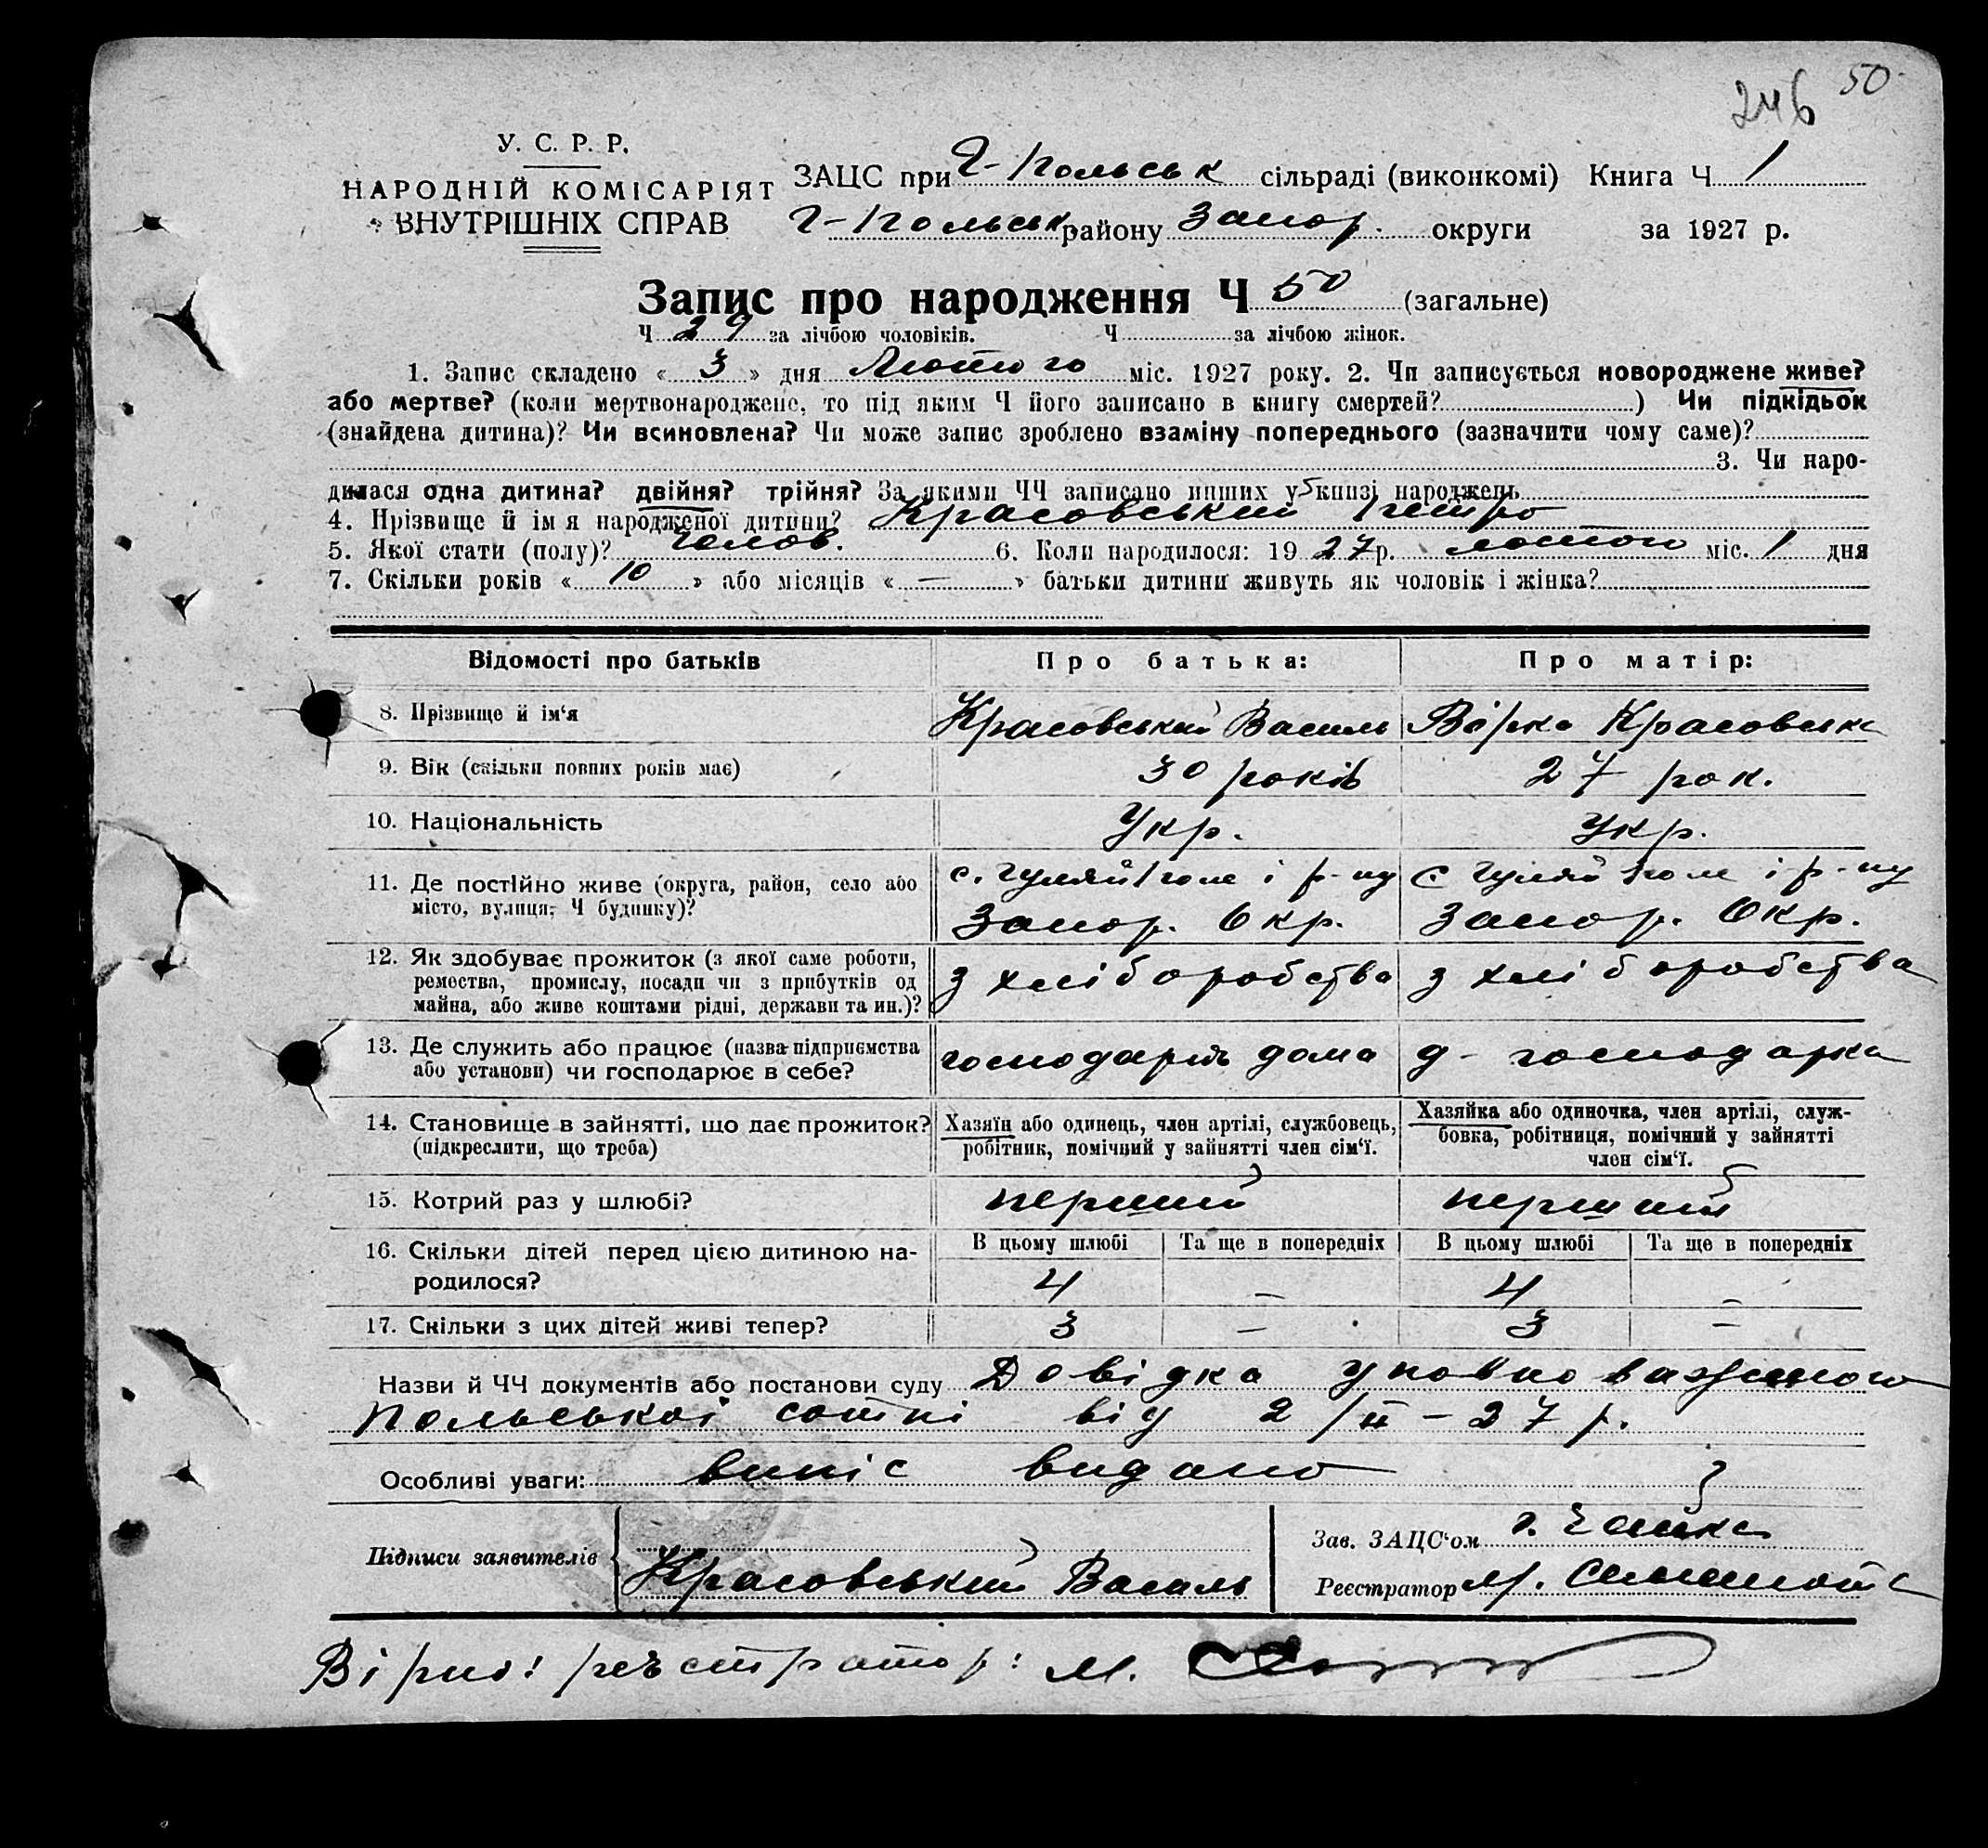 246 50
У. С. Р. Р.
НАРОДНІЙ КОМІСАРІЯТ
ВНУТРІШНІХ СПРАВ
ЗАЦС при Г-Польськ сільраді (виконкомі) Книга Ч 1
Г-Польськ району Запор. округи за 1927 р.
Запис про народження Ч 50 (загальне)
Ч 29 за лічбою чоловіків. Ч за лічбою жінок.
1. Запис складено « 3 » дня Лютого міс. 1927 року. 2. Чи записується новороджене живе?
або мертве? (коли мертвонароджене, то під яким Ч його записано в книгу смертей? ) Чи підкідьок
(знайдена дитина)? Чи всиновлена? Чи може запис зроблено взаміну попереднього (зазначити чому саме)?
3. Чи наро-
дилася одна дитина? двійня? трійня? За якими ЧЧ записано инших у книзі народжень
4. Прізвище й ім я народженої дитини? Красовський Петро
5. Якої стати (полу)? Чолов. 6. Коли народилося: 19 27 р. лютого міс. 1 дня
7. Скільки років « 10 » або місяців « — » батьки дитини живуть як чоловік і жінка?
Відомості про батьків Про батька: Про матір:
8. Прізвище й ім‘я Красовський Василь Вірка Красовська
9. Вік (скільки повних років має) 30 років 27 рок.
10. Національність Укр. Укр.
11. Де постійно живе (округа, район, село або місто, вулиця, Ч будинку)? с. Гуляйполе і р-ну Запор. Окр. с Гуляйполе і р-ну Запор. Окр.
12. Як здобуває прожиток (з якої саме роботи, ремества, промислу, посади чи з прибутків од майна, або живе коштами рідні, держави та ин.)? з хліборобства з хліборобства
13. Де служить або працює (назва підприємства або установи) чи господарює в себе? господарить дома д-господарка
14. Становище в зайнятті, що дає прожиток? (підкреслити, що треба) Хазяїн або одинець, член артілі, службовець, робітник, помічний у зайнятті член сім‘ї. Хазяйка або одиночка, член артілі, служ-бовка, робітниця, помічний у зайнятті член сім‘ї.
15. Котрий раз у шлюбі? перший перший
16. Скільки дітей перед цією дитиною на-родилося? В цьому шлюбі Та ще в попередніх В цьому шлюбі Та ще в попередніх
4 — 4 —
17. Скільки з цих дітей живі тепер? 3 — 3 —
Назви й ЧЧ документів або постанови суду Довідка уповноваженого
Польської сотні від 2/ІІ-27 р.
Особливі уваги: випіс видано
Підписи заявителів Красовський Василь
Зав. ЗАЦС‘ом г. Чайка
Реєстратор М.
Вірно! реъстратор: М.